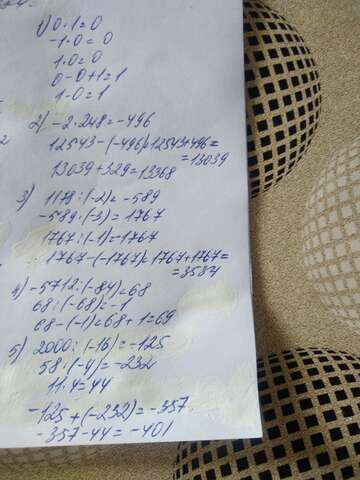 1) 0·1=0
-1·0=0
1·0=0
0-0+1=1
1-0=1
2) -2·248=-496
12543-(-496)=12543+496=
=13039
13039+329=13368
3) 1178:(-2)=-589
-589·(-3)=1767
1767:(-1)=-1767
1767-(-1767)=1767+1767=
=3534
4) -5712:(-84)=68
68:(-68)=-1
68-(-1)=68+1=69
5) 2000:(-16)=-125
58·(-4)=-232
11·4=44
-125+(-232)=-357
-357-44=-401